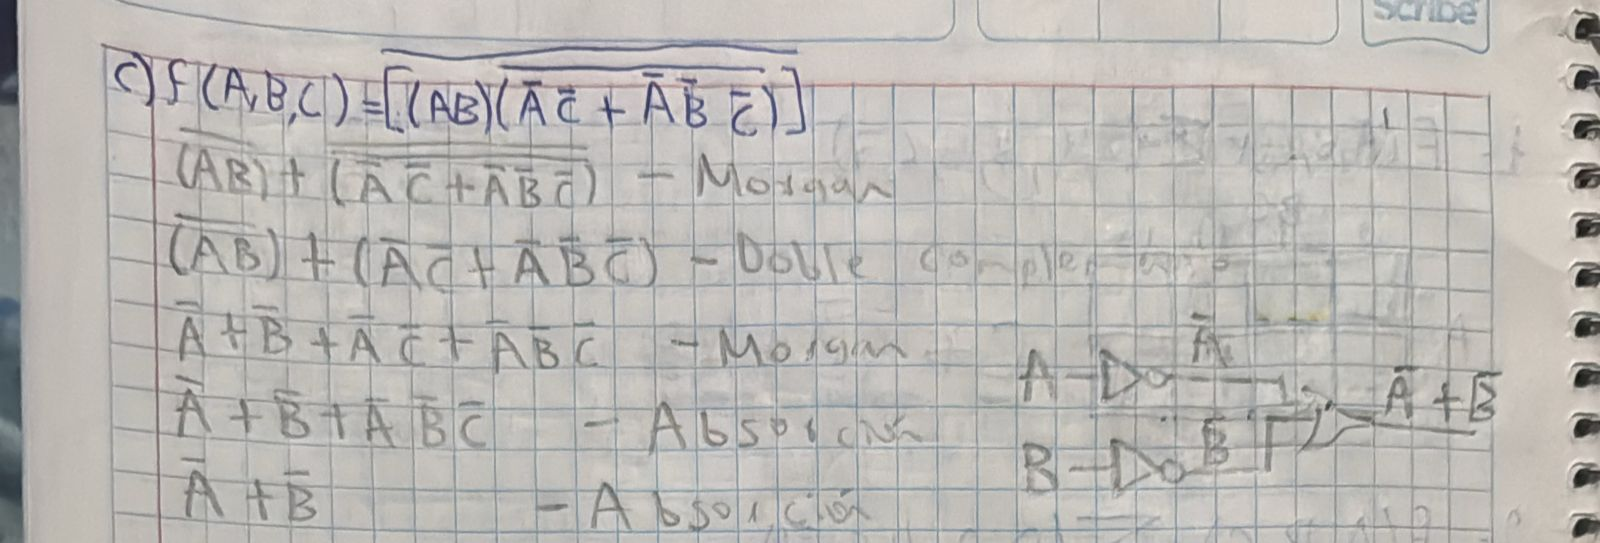 Scribe
c) f(A,B,C) = [(AB)(A̅ C̅ + A̅ B̅ C̅)]
(AB) + (A̅ C̅ + A̅ B̅ C̅) - Morgan
(AB) + (A̅ C̅ + A̅ B̅ C̅) - Doble
A̅ + B̅ + A̅ C̅ + A̅ B̅ C̅ - Morgan
A̅ + B̅ + A̅ B̅ C̅ - Absorción
A̅ + B̅ - Absorción
A A̅ A̅ + B̅
B B̅